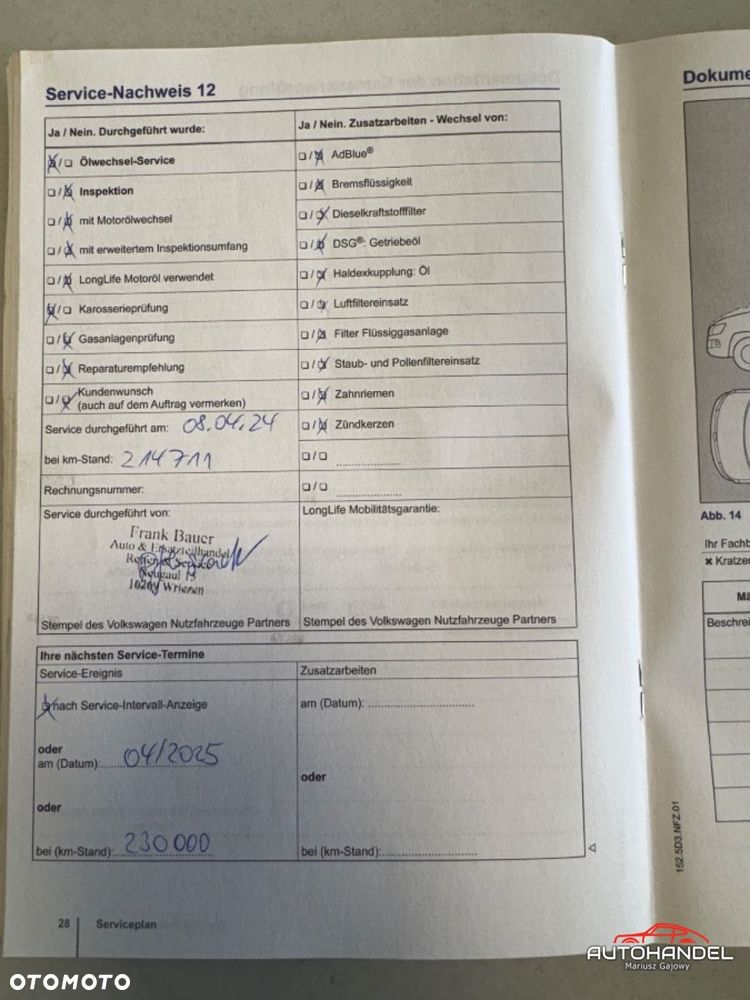 Service-Nachweis 12
Dokume
Ja / Nein. Durchgeführt wurde:
Ja / Nein. Zusatzarbeiten - Wechsel von:
Ölwechsel-Service
AdBlue®
Inspektion
Bremsflüssigkeit
mit Motorölwechsel
Dieselkraftstofffilter
mit erweitertem Inspektionsumfang
DSG®: Getriebeöl
LongLife Motoröl verwendet
Haldexkupplung: Öl
Karosserieprüfung
Luftfiltereinsatz
Gasanlagenprüfung
Filter Flüssiggasanlage
Reparaturempfehlung
Staub- und Pollenfiltereinsatz
Kundenwunsch
(auch auf dem Auftrag vermerken)
Zahnriemen
Service durchgeführt am: 08.04.24
Zündkerzen
bei km-Stand: 214711
Rechnungsnummer:
Service durchgeführt von:
LongLife Mobilitätsgarantie:
Frank Bauer
Auto & Ersatzteilhandel
16269 Wriezen
Stempel des Volkswagen Nutzfahrzeuge Partners
Stempel des Volkswagen Nutzfahrzeuge Partners
Ihre nächsten Service-Termine
Service-Ereignis
Zusatzarbeiten
nach Service-Intervall-Anzeige
am (Datum):
oder
am (Datum): 04/2025
oder
oder
bei (km-Stand): 230 000
bei (km-Stand):
28 Serviceplan
152.5D3.NFZ.01
Abb. 14
Ihr Fachb
x Kratzer
Mä
Beschrei
AUTOHANDEL
Mariusz Gajowy
OTOMOTO